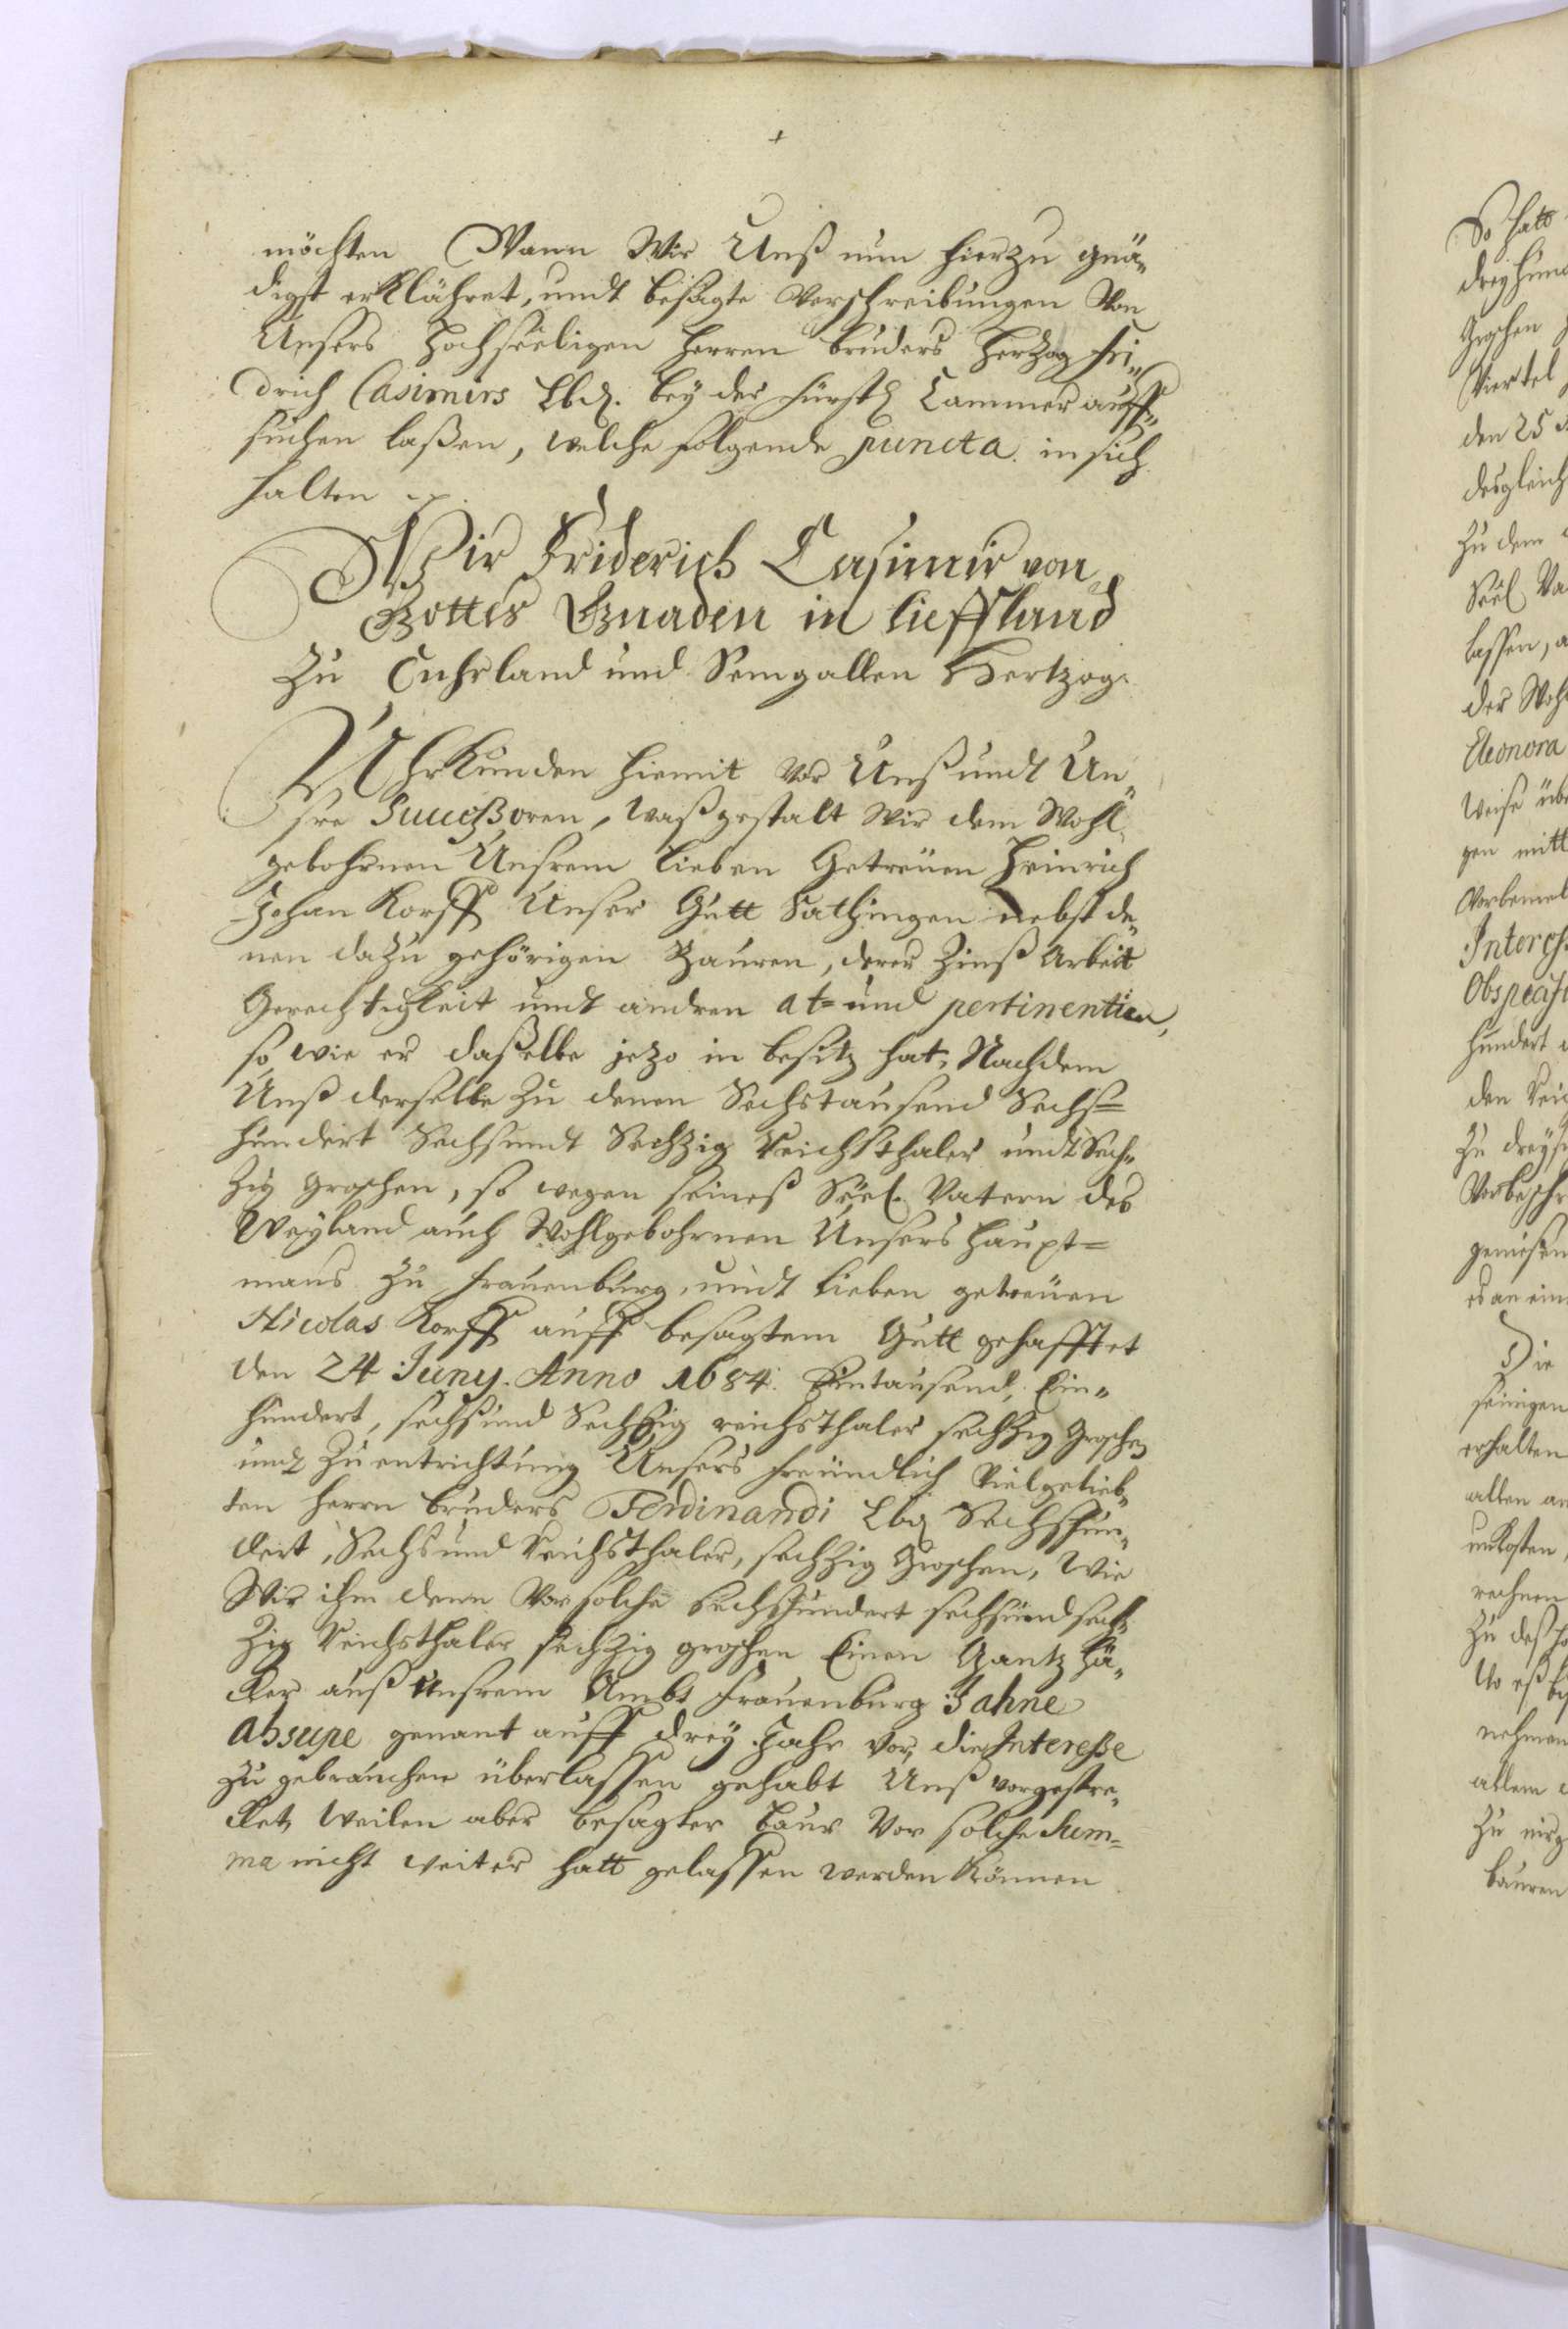 möchten Wann Wir Unß nun hierzu gnä„
digst erklähret, undt besagte Verschreibungen Von
Unsers Hochseeligen Herren Bruders Hertzog Fri„
drich Casimirs Lbd. bey der Fürstl Cammer auff„
suchen laßen, welche folgende puncta in sich
halten
Wir Friderich Casimir von
Gottes Gnaden in Lieffland
Zu Cuhrland und Semgallen Hertzog.
Uhrkunden hiemit vor Unß undt Un„
sre Succeßoren, waßgestalt Wir dem Wohl
gebohrnen Unsrem Lieben Getreüen Heinrich
Johan Korff Unser Gutt Sathingen nebst de„
nen dazu gehörigen Bauren, derer Zinß Arbeit
Gerechtigkeit undt andren at= und pertinentien,
so wie er daßelbe jezo in besitz hat, Nachdem
Unß derselbe zu denen Sechstausend Sechs=
hundert Sechsundt Sechzig Reichsthaler undt Sech„
zig groschen, so wegen seineß Seel. Vatern des
Weyland auch Wohlgebohrnen Unsers Haupt=
mans zu Frauenburg, undt lieben getreüen
Nicolas Korff auff besagtem Gutt gehafftet
den 24 Juny. Anno 1684. Eintausend, Ein„
hundert, sechsund Sechzig reichsthaler sechzig groschen
undt zu entrichtung Unsers freündlich Vielgelieb„
ten Herrn Bruders Ferdinandi Lbd Sechshun„
dert, Sechsund Reichsthaler, sechzig groschen, Wie
Wir ihm denn Vor solche sechshundert sechsund sech„
zig Reichsthaler sechzig groschen Einen Gantz Hä„
ker auß Unsrem Ambt Frauenburg Jahne
Absupe genant auff drey Jahr vor, die Intereße
zu gebrauchen überlassen gehabt Unß vorgestre„
cket, weilen aber besagter Baur Vor solche Sum„
ma nicht weiter hatt gelassen werden können
So hatt
dreyhund
groschen
Viertel
den 25
desgleich
Zu dem
Seel Va
lassen, a
der Wohl
Eleonora
weise übe
gen mitt
Vorbemel
Intereß
hundert
den Reic
Zu dreyh
Vorbeschr
genießen
es an ein
Die
seinigen
erhalten
allen an
unkosten
rechnen
nehmen
allem
Bauren